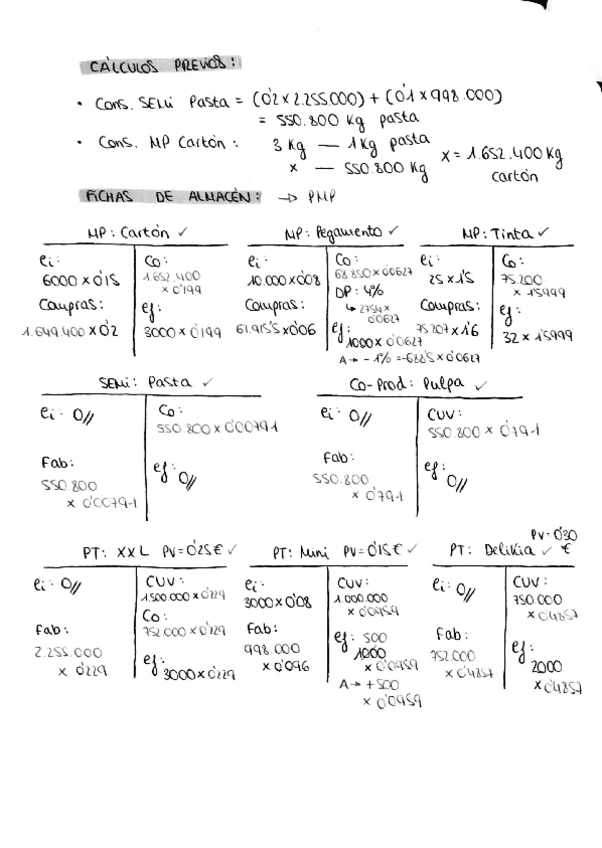 CÁLCULOS PREVIOS:
• Cons. SEMI Pasta = (0'2 x 2.255.000) + (0'1 x 998.000)
= 550.800 Kg pasta
• Cons. MP Cartón: 3 Kg — 1 Kg pasta
x — 550.800 Kg
x = 1.652.400 Kg cartón
FICHAS DE ALMACÉN: → PMP
MP: Cartón ✓
ei:
6000 x 0'15
Compras:
1.649.400 x 0'2
Co:
1.652.400
x 0'199
ef:
3000 x 0'199
MP: Pegamento ✓
ei:
10.000 x 0'08
Compras:
61.915'5 x 0'06
Co:
68.850 x 0'0627
DP: 4%
↳ 2754 x
0'0627
ef:
1000 x 0'0627
A → - 1% = -688'5 x 0'0627
MP: Tinta ✓
ei:
25 x 1'5
Compras:
75.207 x 1'6
Co:
75.200
x 1'5999
ef:
32 x 1'5999
SEMI: Pasta ✓
ei: 0//
Fab:
550.800
x 0'00794
Co:
550.800 x 0'00794
ef: 0//
Co-Prod: Pulpa ✓
ei: 0//
Fab:
550.800
x 0'794
CUV:
550.800 x 0'794
ef: 0//
PT: XXL PV = 0'25€ ✓
ei: 0//
Fab:
2.255.000
x 0'229
CUV:
1.500.000 x 0'229
Co:
752.000 x 0'229
ef:
3000 x 0'229
PT: Mini PV = 0'15€ ✓
ei:
3000 x 0'08
Fab:
998.000
x 0'096
CUV:
1.000.000
x 0'0959
ef: 500
1000
x 0'0959
A → + 500
x 0'0959
PV = 0'30
PT: Delikia ✓ €
ei: 0//
Fab:
752.000
x 0'4857
CUV:
750.000
x 0'4857
ef:
2000
x 0'4857